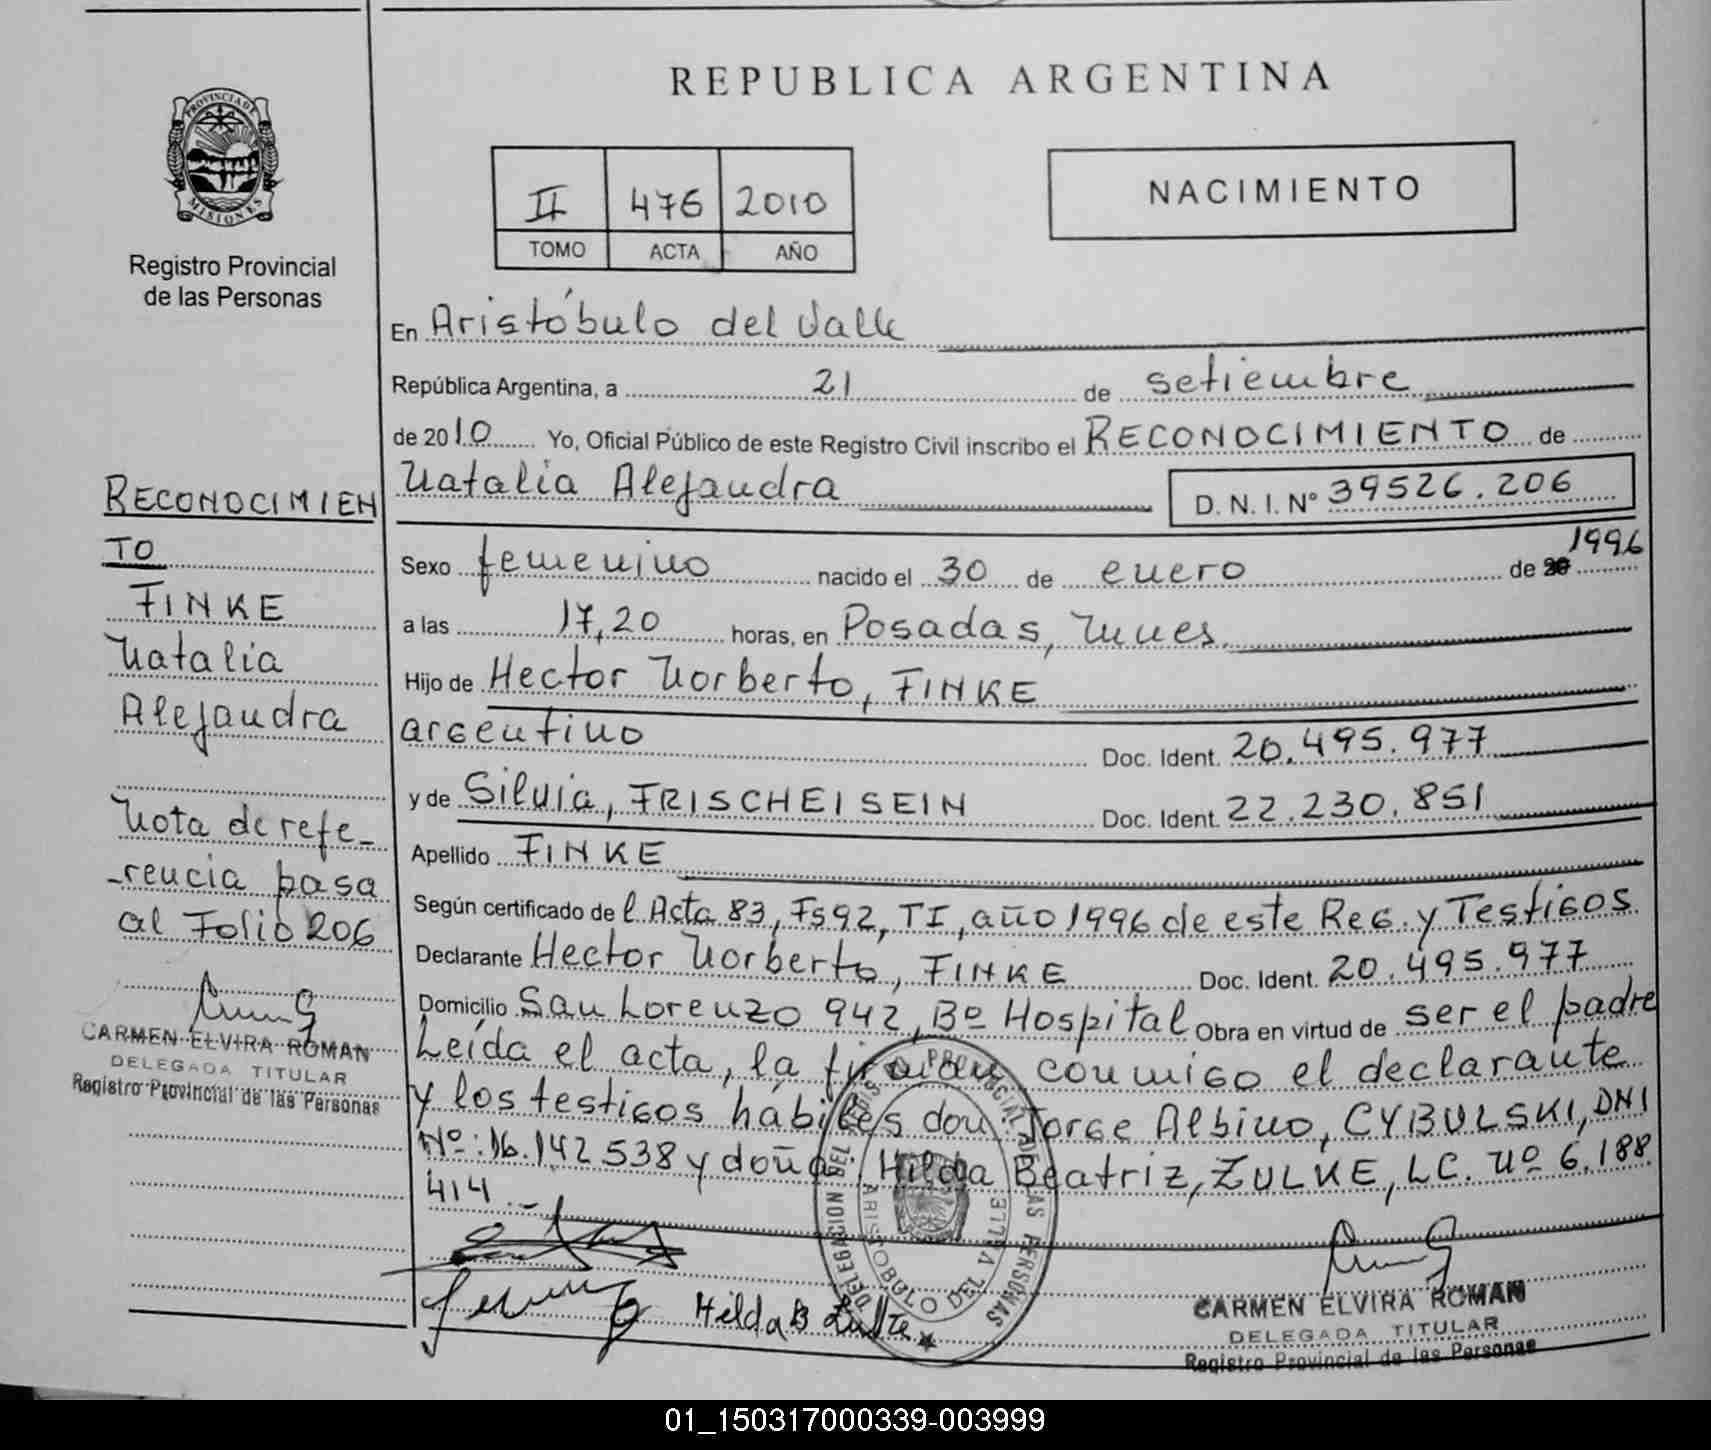 REPUBLICA ARGENTINA
PROVINCIA DE
MISIONES
Registro Provincial
de las Personas
II 476 2010
TOMO ACTA AÑO
NACIMIENTO
En Aristóbulo del Valle
República Argentina, a 21 de setiembre
de 2010 Yo, Oficial Público de este Registro Civil inscribo el RECONOCIMIENTO de
Natalia Alejandra D. N. I. Nº 39526.206
Sexo femenino nacido el 30 de enero de 20 1996
a las 17,20 horas, en Posadas, Mnes.
Hijo de Hector Norberto, FINKE
argentino Doc. Ident. 20.495.977
y de Silvia, FRISCHEISEIN Doc. Ident. 22.230.851
Apellido FINKE
Según certificado de l Acta 83, Fs 92, TI, año 1996 de este Reg. y Testigos
Declarante Hector Norberto, FINKE Doc. Ident. 20.495.977
Domicilio San Lorenzo 942, Bº Hospital Obra en virtud de ser el padre
Leída el acta, la firman conmigo el declarante
y los testigos hábiles don Jorge Albino, CYBULSKI, DNI
Nº: 16.142538 y doña Hilda Beatriz, ZULKE, LC. Nº 6.188
414.-
Hilda B Zulke
DELEGACION DEL REGISTRO PROVINCIAL DE LAS PERSONAS
ARISTOBULO DEL VALLE
CARMEN ELVIRA ROMAN
DELEGADA TITULAR
Registro Provincial de las Personas
RECONOCIMIEN
TO
FINKE
Natalia
Alejandra
Nota de refe-
-rencia pasa
al Folio 206
CARMEN ELVIRA ROMAN
DELEGADA TITULAR
Registro Provincial de las Personas
01_150317000339-003999